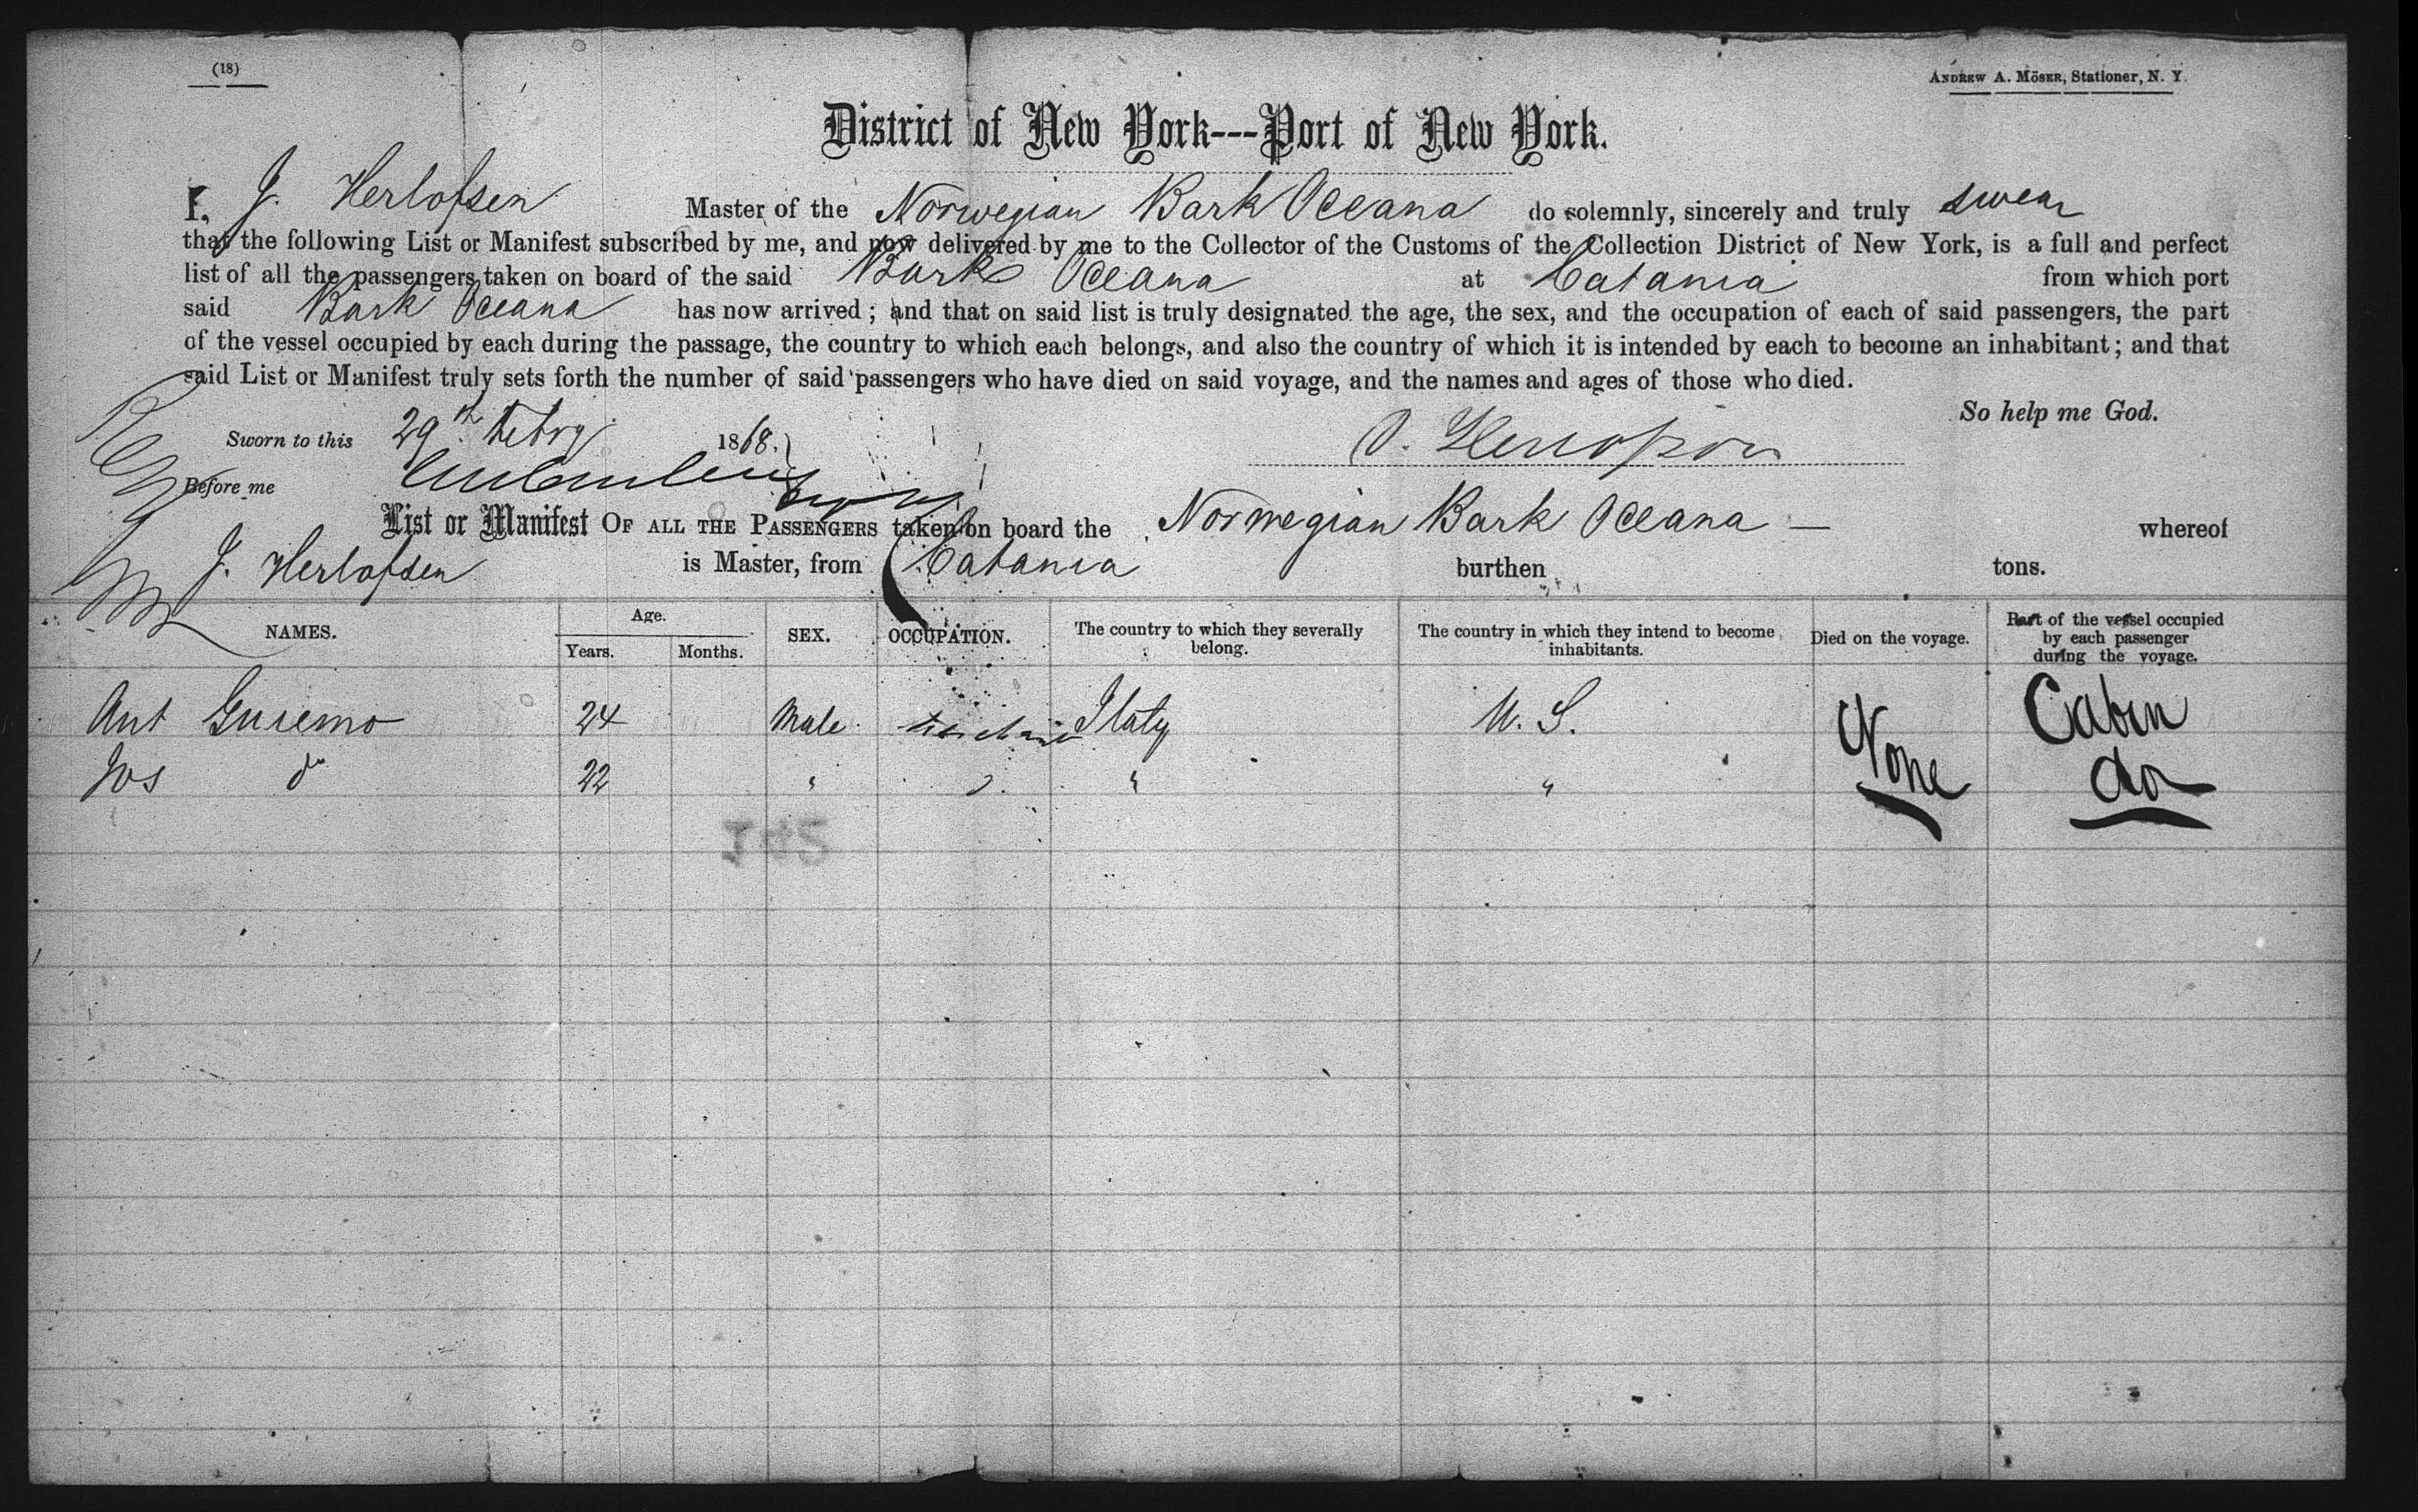 (18)
ANDREW A. MÖSER, Stationer, N. Y.
District of New York---Port of New York.
I, J. Herlofsen Master of the Norwegian Bark Oceana do solemnly, sincerely and truly swear
that the following List or Manifest subscribed by me, and now delivered by me to the Collector of the Customs of the Collection District of New York, is a full and perfect
list of all the passengers taken on board of the said Bark Oceana at Catania from which port
said Bark Oceana has now arrived; and that on said list is truly designated the age, the sex, and the occupation of each of said passengers, the part
of the vessel occupied by each during the passage, the country to which each belongs, and also the country of which it is intended by each to become an inhabitant; and that
said List or Manifest truly sets forth the number of said passengers who have died on said voyage, and the names and ages of those who died.
So help me God.
Sworn to this 29th Febry 1868.
Before me
List or Manifest OF ALL THE PASSENGERS taken on board the Norwegian Bark Oceana — whereof
J. Herlofsen is Master, from Catania burthen tons.
NAMES. Age. Years. Months. SEX. OCCUPATION. The country to which they severally belong. The country in which they intend to become inhabitants. Died on the voyage. Part of the vessel occupied by each passenger during the voyage.
Ant 24 Male Italy U. S. None Cabin
Jos do 22 " " " do